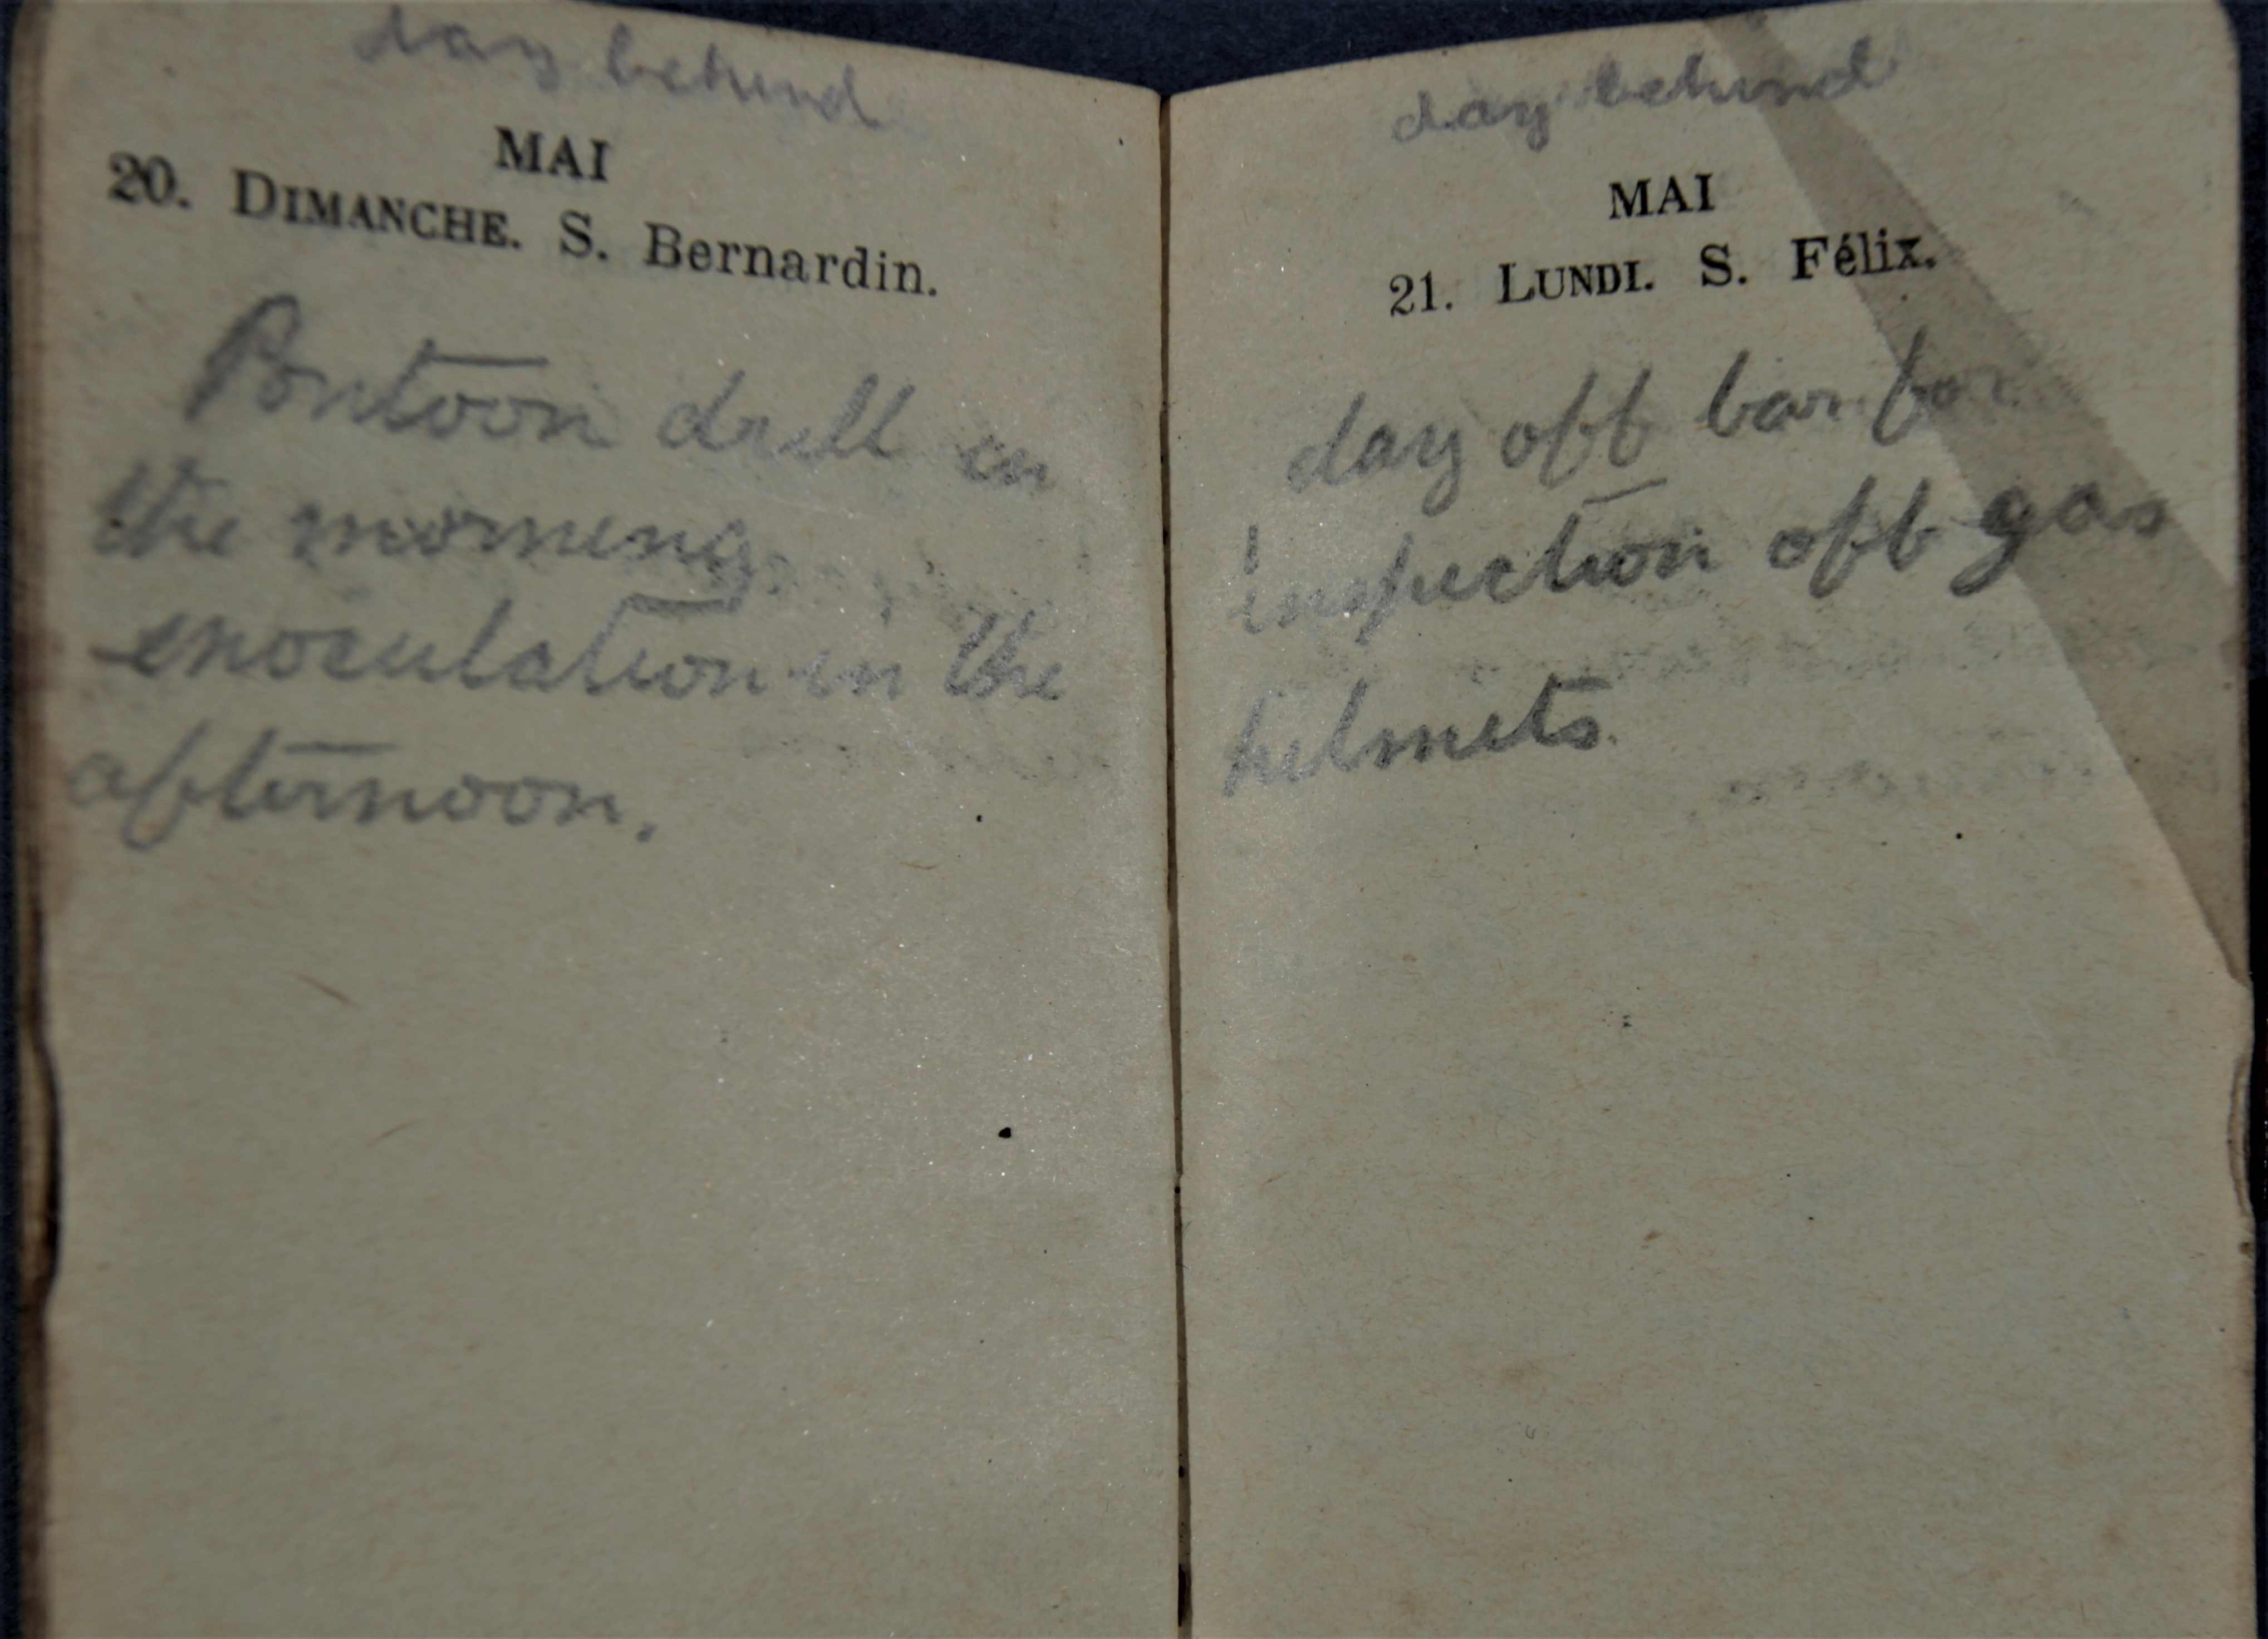 day behind
MAI
20. DIMANCHE. S. Bernardin.
Pontoon drill in
the morning.
enoculation in the
afternoon.
day behind
MAI
21. LUNDI. S. Félix.
day off bar for
inspection off gas
helmets.